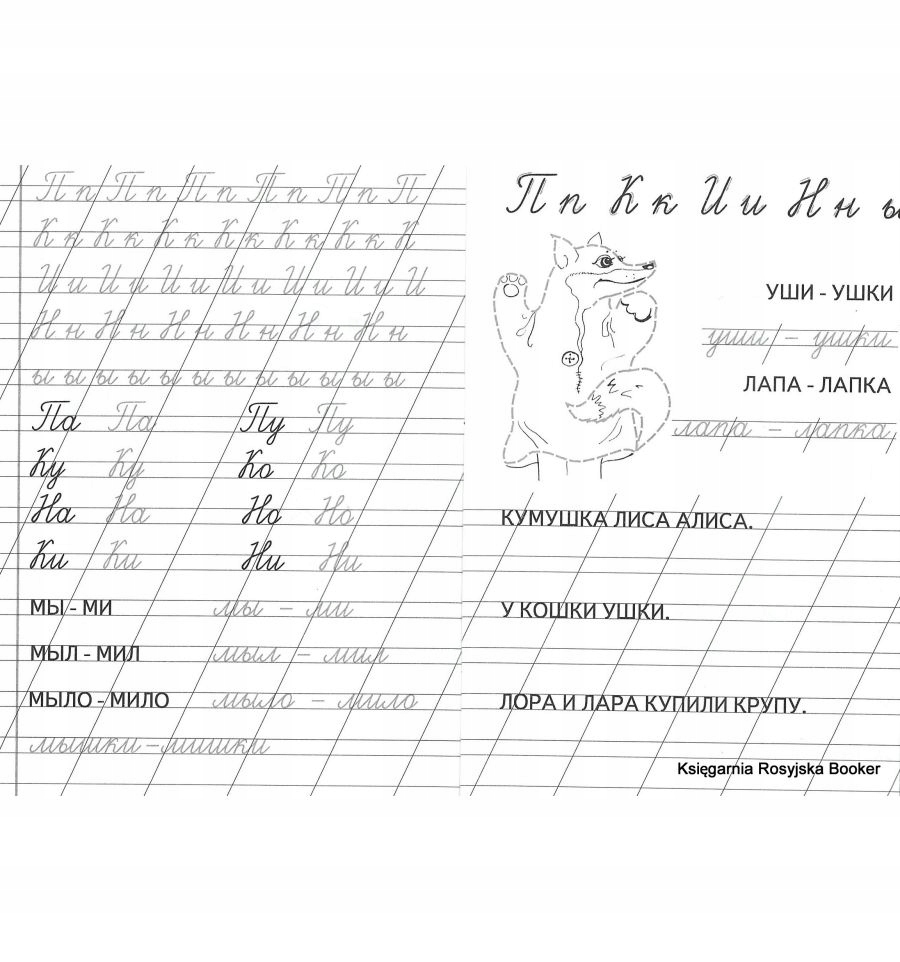 П п П п П п П п П п П
К к К к К к К к К к К к К
И и И и И и И и И и И и И
Н н Н н Н н Н н Н н Н н
ы ы ы ы ы ы ы ы ы ы ы ы
Па Па Пу Пу
Ку Ку Ко Ко
На На Но Но
Ки Ки Ни Ни
МЫ - МИ мы - ми
МЫЛ - МИЛ мыл - мил
МЫЛО - МИЛО мыло - мило
мышки - мишки
П п К к И и Н н ы
УШИ - УШКИ
уши - ушки
ЛАПА - ЛАПКА
лапа - лапка
КУМУШКА ЛИСА АЛИСА.
У КОШКИ УШКИ.
ЛОРА И ЛАРА КУПИЛИ КРУПУ.
Księgarnia Rosyjska Booker